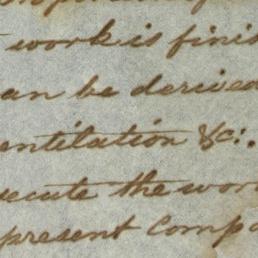 work is finis
an be derived
entilation &c:.
ecute the wor
present compa